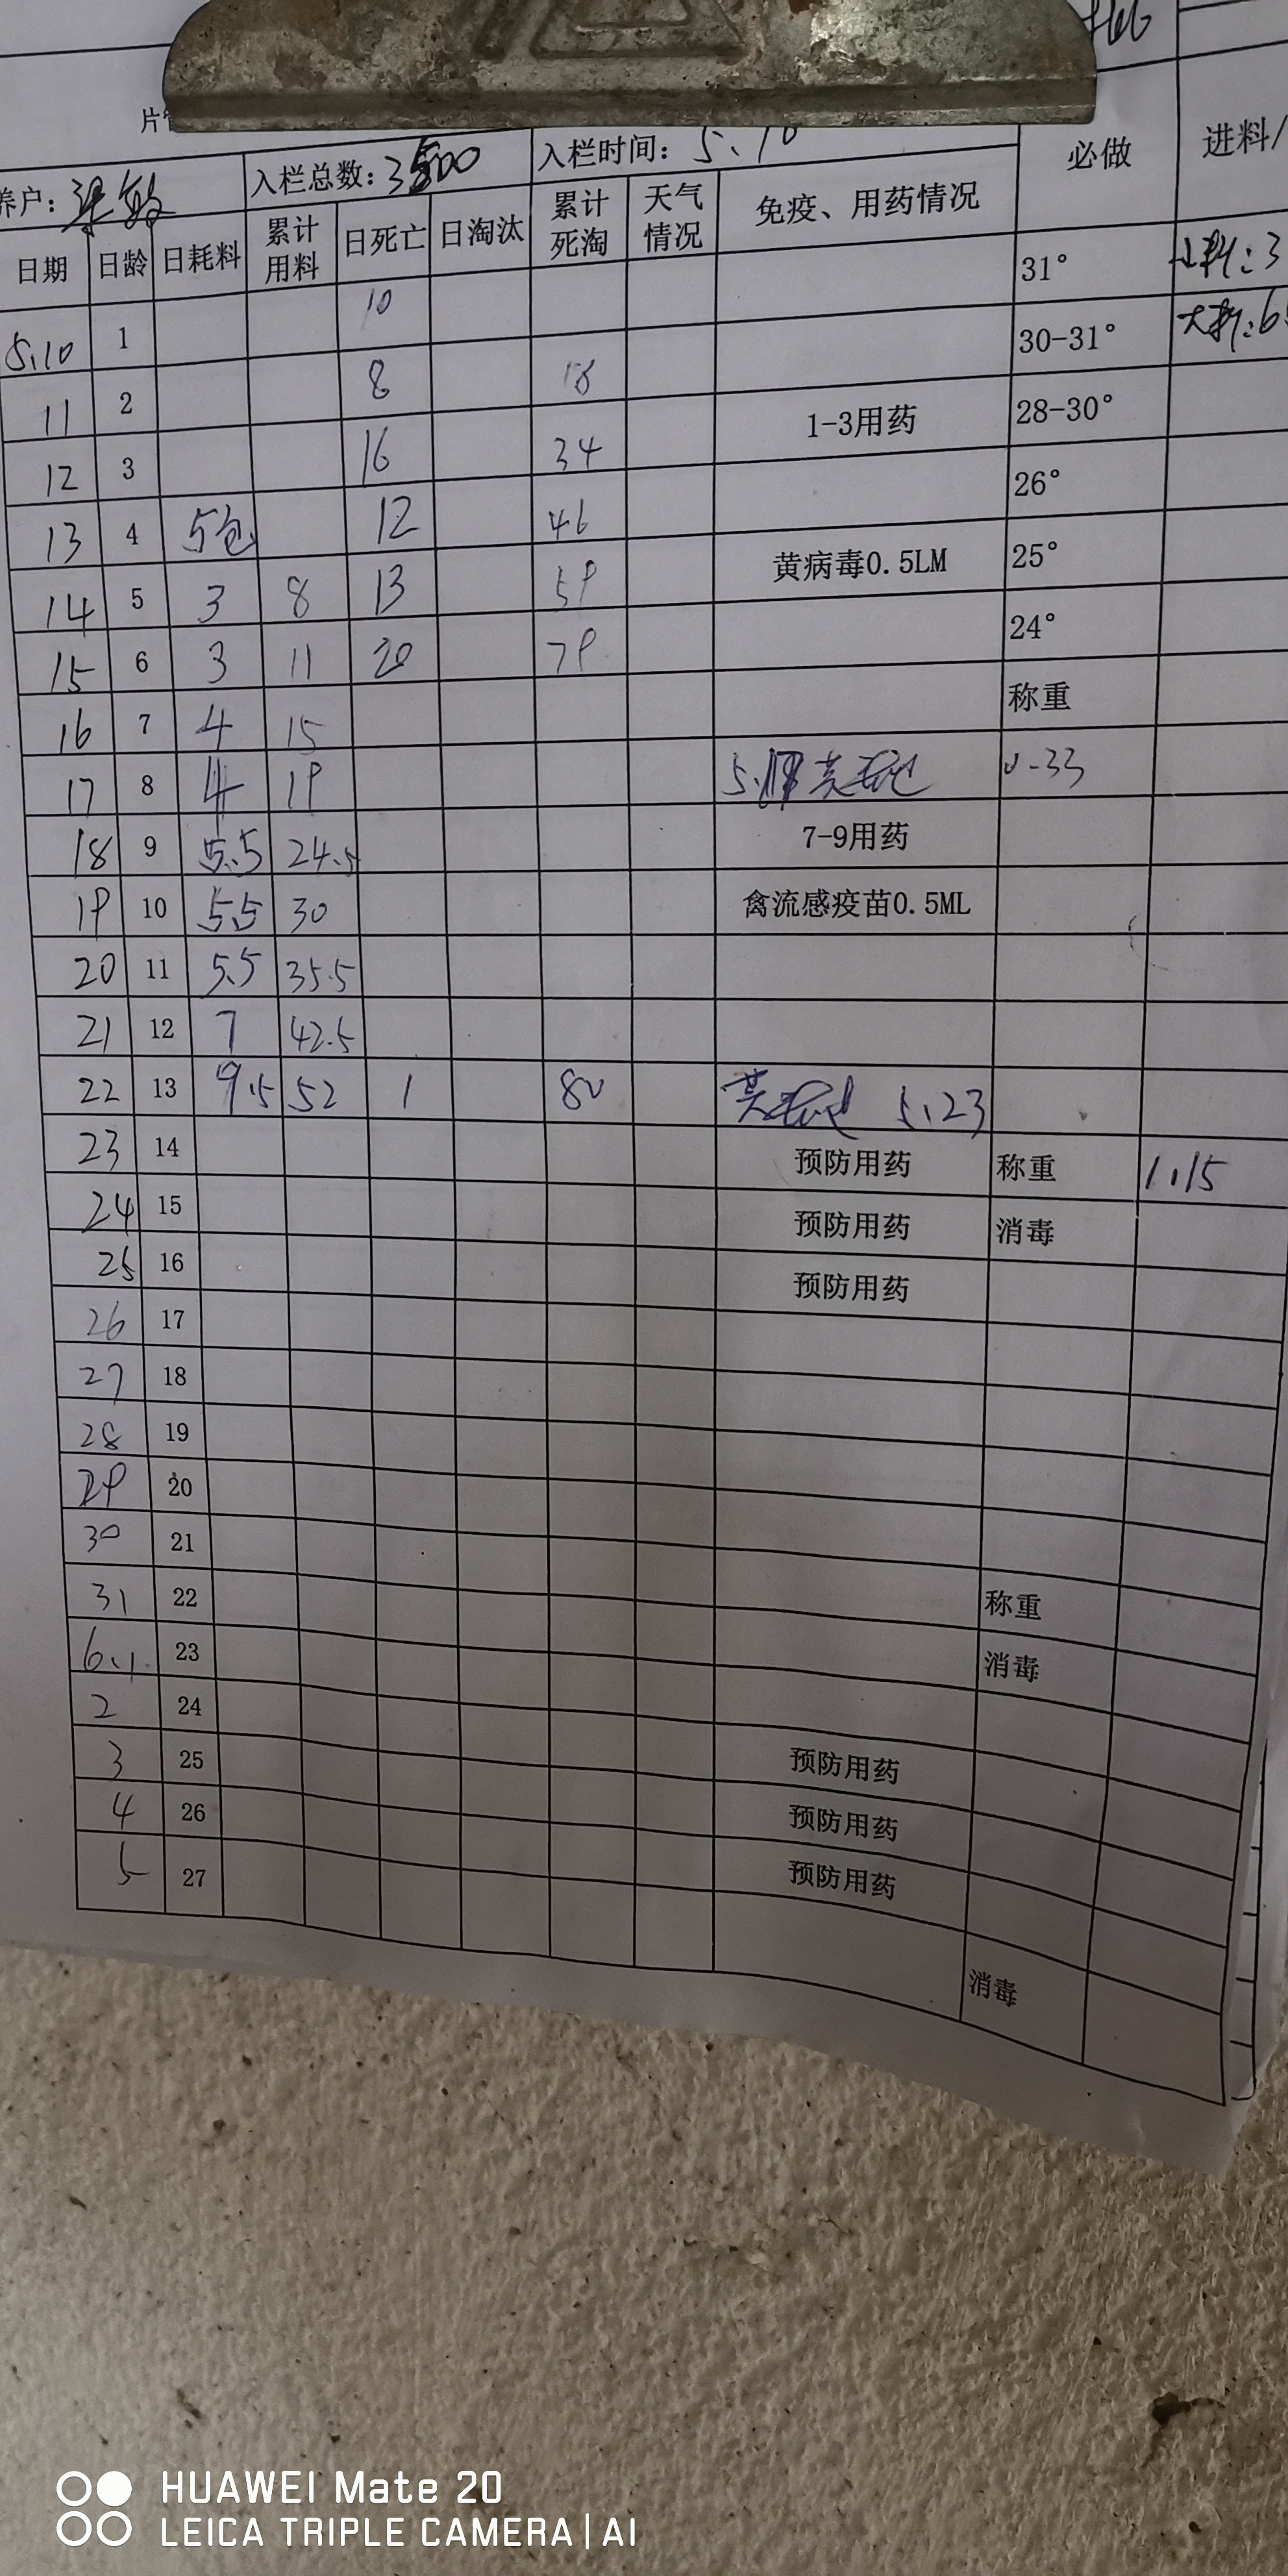 片
养户: 入栏总数: 3500 入栏时间: 5.10 必做 进料/
日期 日龄 日耗料 累计用料 日死亡 日淘汰 累计死淘 天气情况 免疫、用药情况
5.10 1 10 31°
11 2 8 18 30-31° 大料:6
12 3 16 34 1-3用药 28-30°
13 4 5包 12 46 26°
14 5 3 8 13 59 黄病毒0.5LM 25°
15 6 3 11 20 79 24°
16 7 4 15 称重
17 8 4 19 0.33
18 9 5.5 24.5 7-9用药
19 10 5.5 30 禽流感疫苗0.5ML
20 11 5.5 35.5
21 12 7 42.5
22 13 9.5 52 1 80 5.23
23 14 预防用药 称重 1.15
24 15 预防用药 消毒
25 16 预防用药
26 17
27 18
28 19
29 20
30 21
31 22 称重
6.1 23 消毒
2 24
3 25 预防用药
4 26 预防用药
5 27 预防用药
消毒
HUAWEI Mate 20
LEICA TRIPLE CAMERA | AI